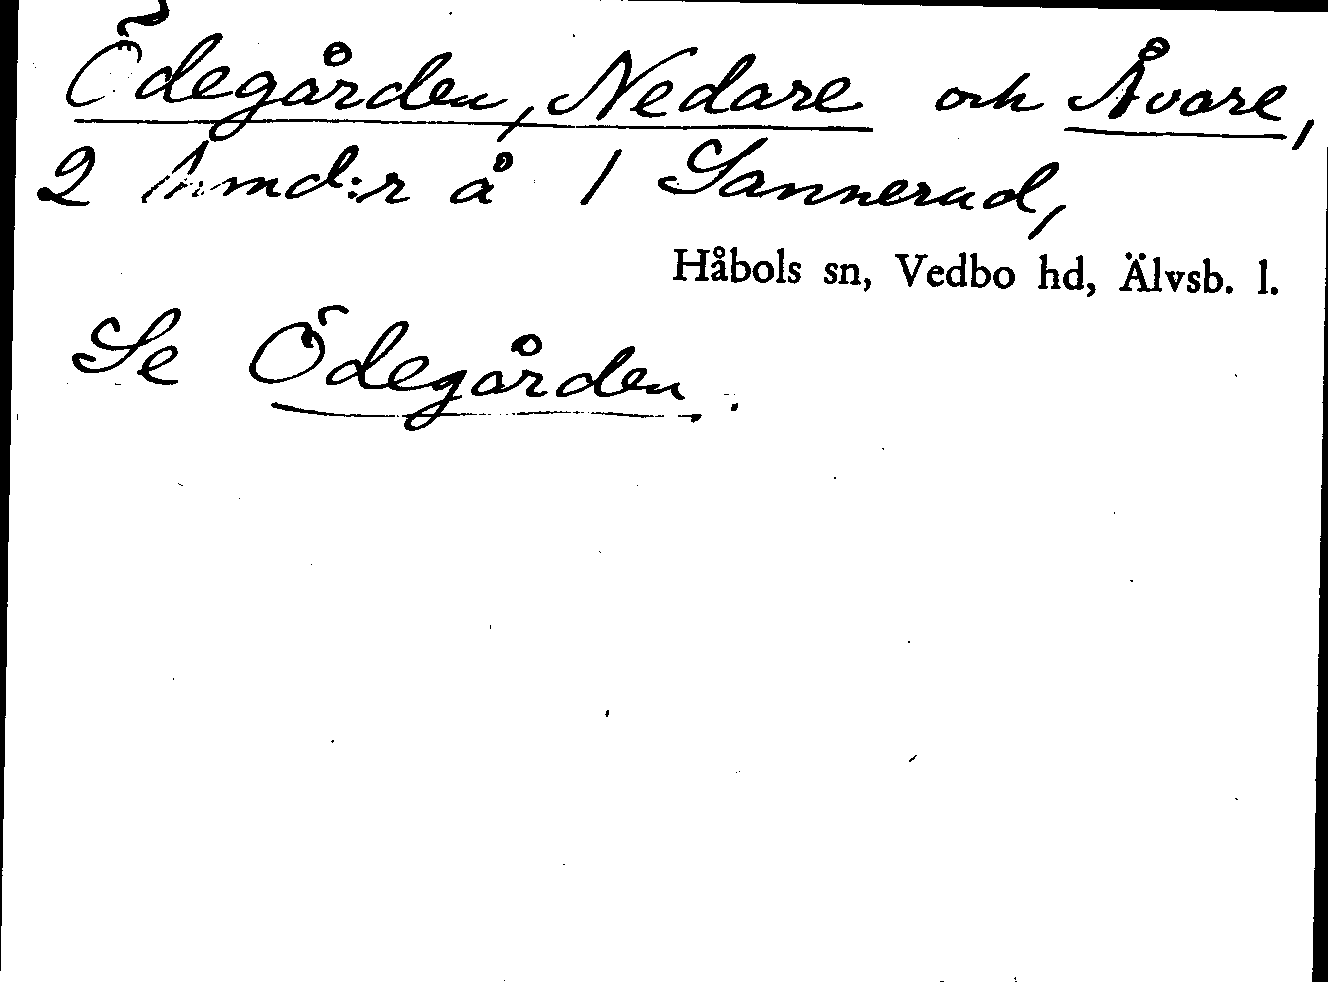 Ödegården, Nedare och Åvare,
2 hmd:r å 1 Sannerud,
Håbols sn, Vedbo hd, Älvsb. l.
Se Ödegården.